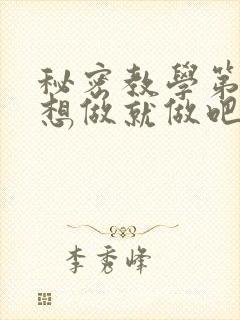 秘密教學第
想做就做吧
李秀峰